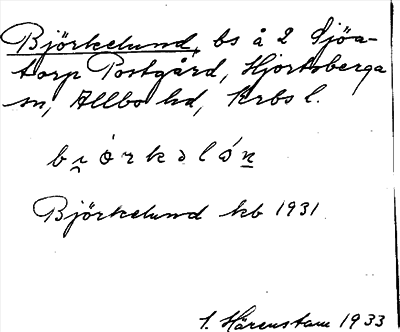 Björkelund, bs å 2 Sjöa-
torp Postgård, Hjortsberga
sn, Allbo hd, Krbs l.
bi̯órkəlón̲
Björkelund kb 1931
I. Härenstam 1933